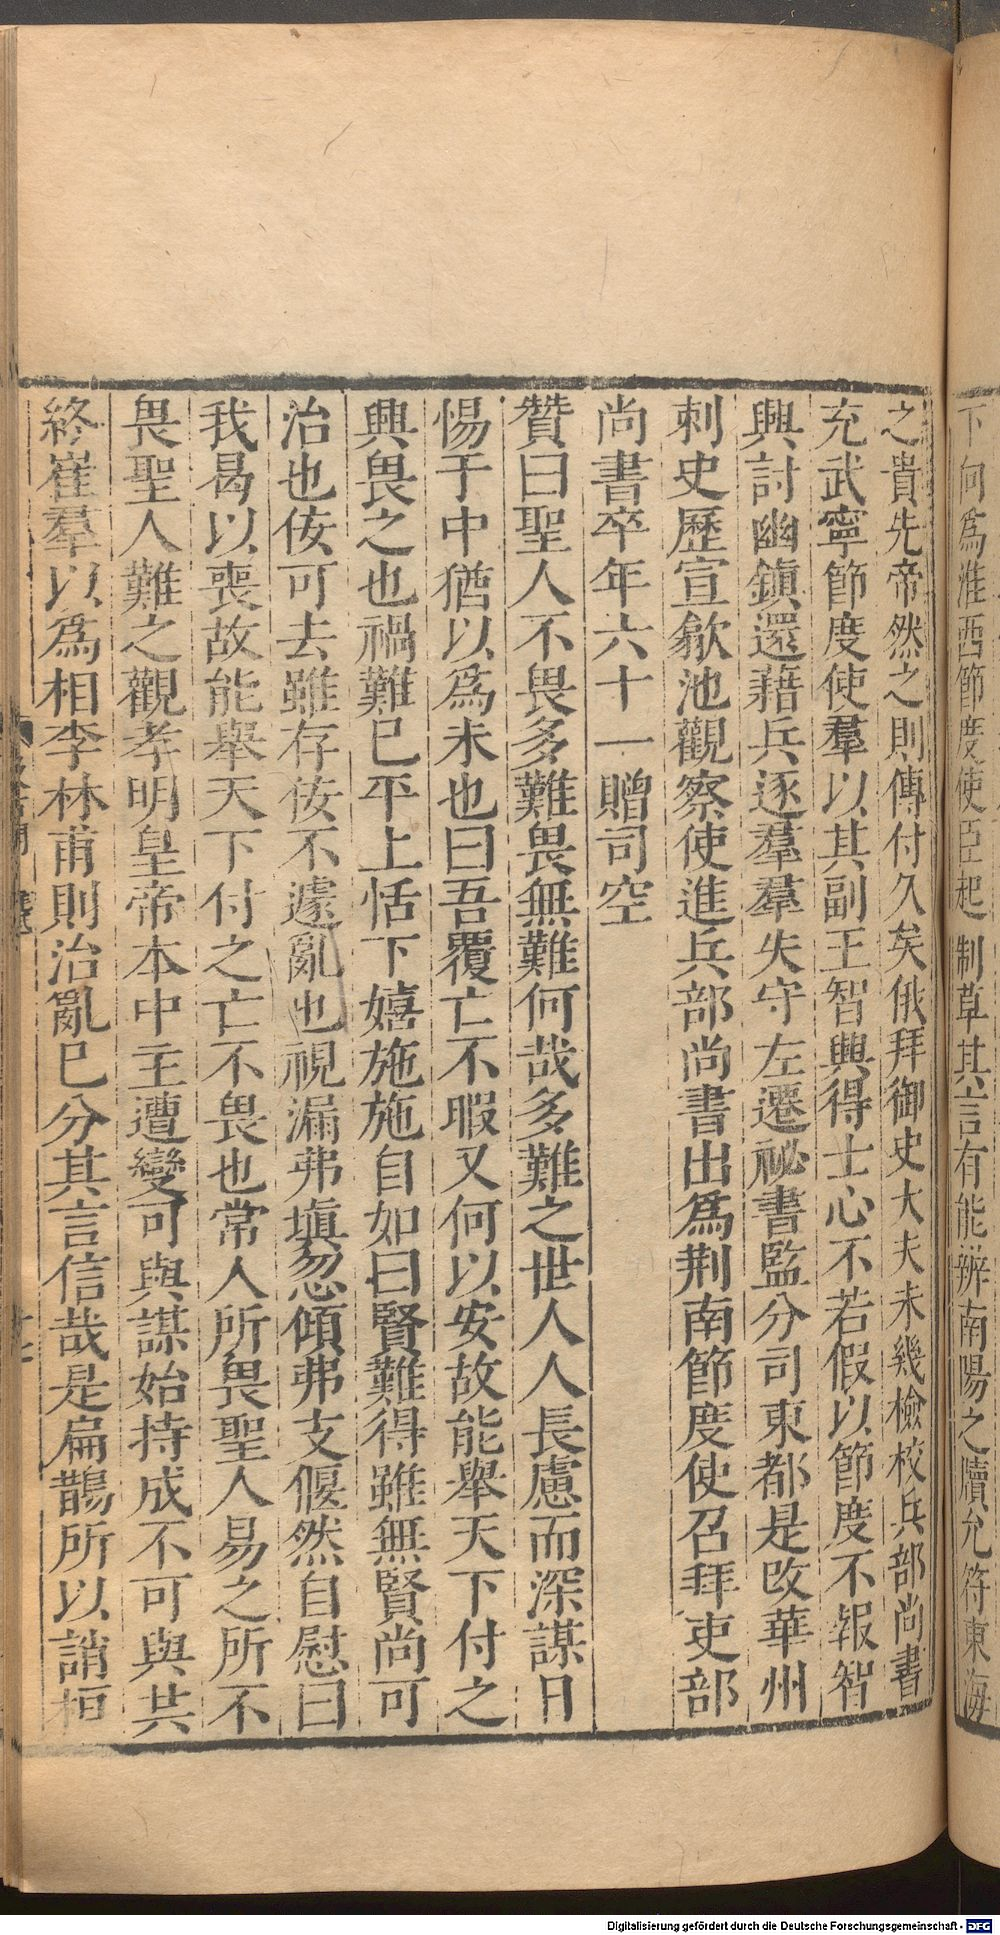 下何爲淮西節度使臣起制草其言有能辨南陽之牘允符東海
之貴先帝然之則傳付久矣俄拜御史大夫未幾檢校兵部尚書
充武寧節度使羣以其副王智興得士心不若假以節度不報智
興討幽鎮還藉兵逐羣羣失守左遷祕書監分司東都是改華州
刺史歷宣歙池觀察使進兵部尚書出爲荆南節度使召拜吏部
尚書卒年六十一贈司空
贊曰聖人不畏多難畏無難何哉多難之世人人長慮而深謀日
惕于中猶以爲未也曰吾覆亡不暇又何以安故能舉天下付之
興畏之也禍難已平上恬下嬉施施自如曰賢難得雖無賢尚可
治也佞可去雖存佞不遽亂也視漏弗塡忽傾弗支偃然自慰曰
我曷以喪故能舉天下付之亡不畏也常人所畏聖人易之所不
畏聖人難之觀孝明皇帝本中主遭變可與謀始持成不可與共
終崔羣以爲相李林甫則治亂已分其言信哉是扁鵲所以誚桓
Digitalisierung gefördert durch die Deutsche Forschungsgemeinschaft - DFG